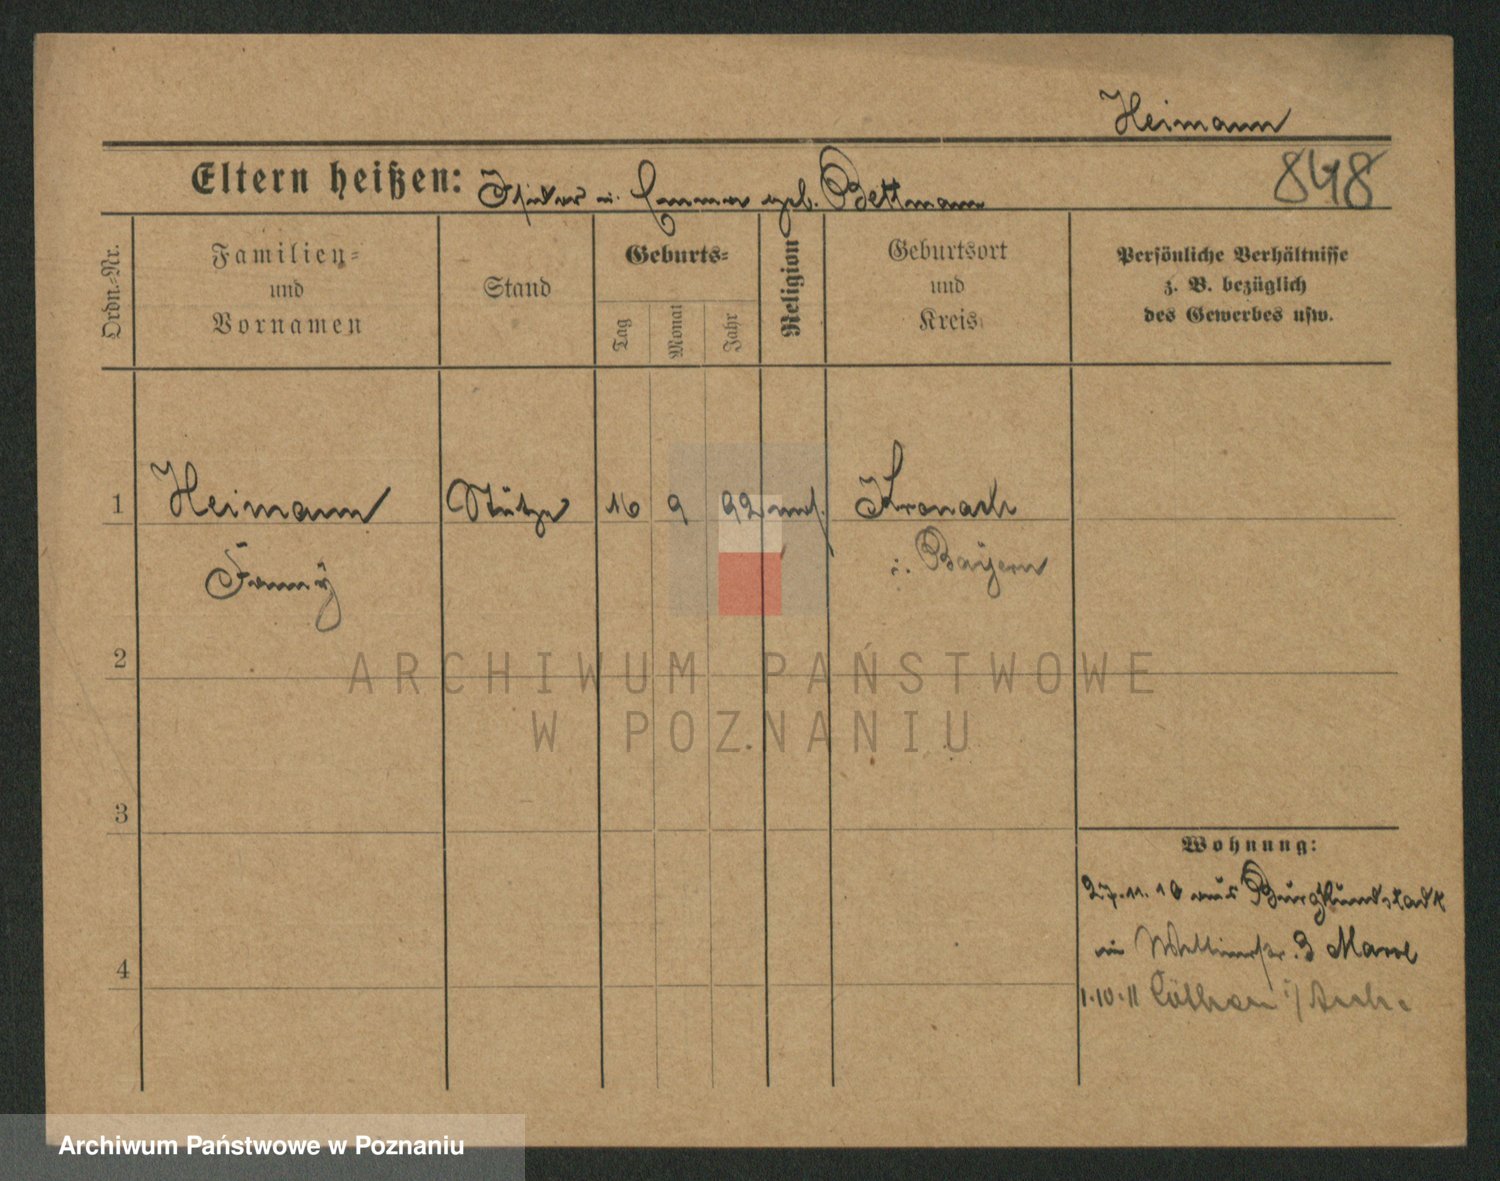 Heimann
Eltern heißen: Isidor u. Emma geb. Bettmann
848
Ordn.-Nr.
Familien-
und
Vornamen
Stand
Geburts-
Tag
Monat
Jahr
Religion
Geburtsort
und
Kreis
Persönliche Verhältnisse
z. B. bezüglich
des Gewerbes usw.
1
Heimann
Fanny
Stütze
16
9
92
mos.
Kronach
i. Bayern
2
3
4
Wohnung:
27.11.10 aus Burgkundstadt
3
1.10.11 Cöthen i/
ARCHIWUM PAŃSTWOWE
W POZNANIU
Archiwum Państwowe w Poznaniu